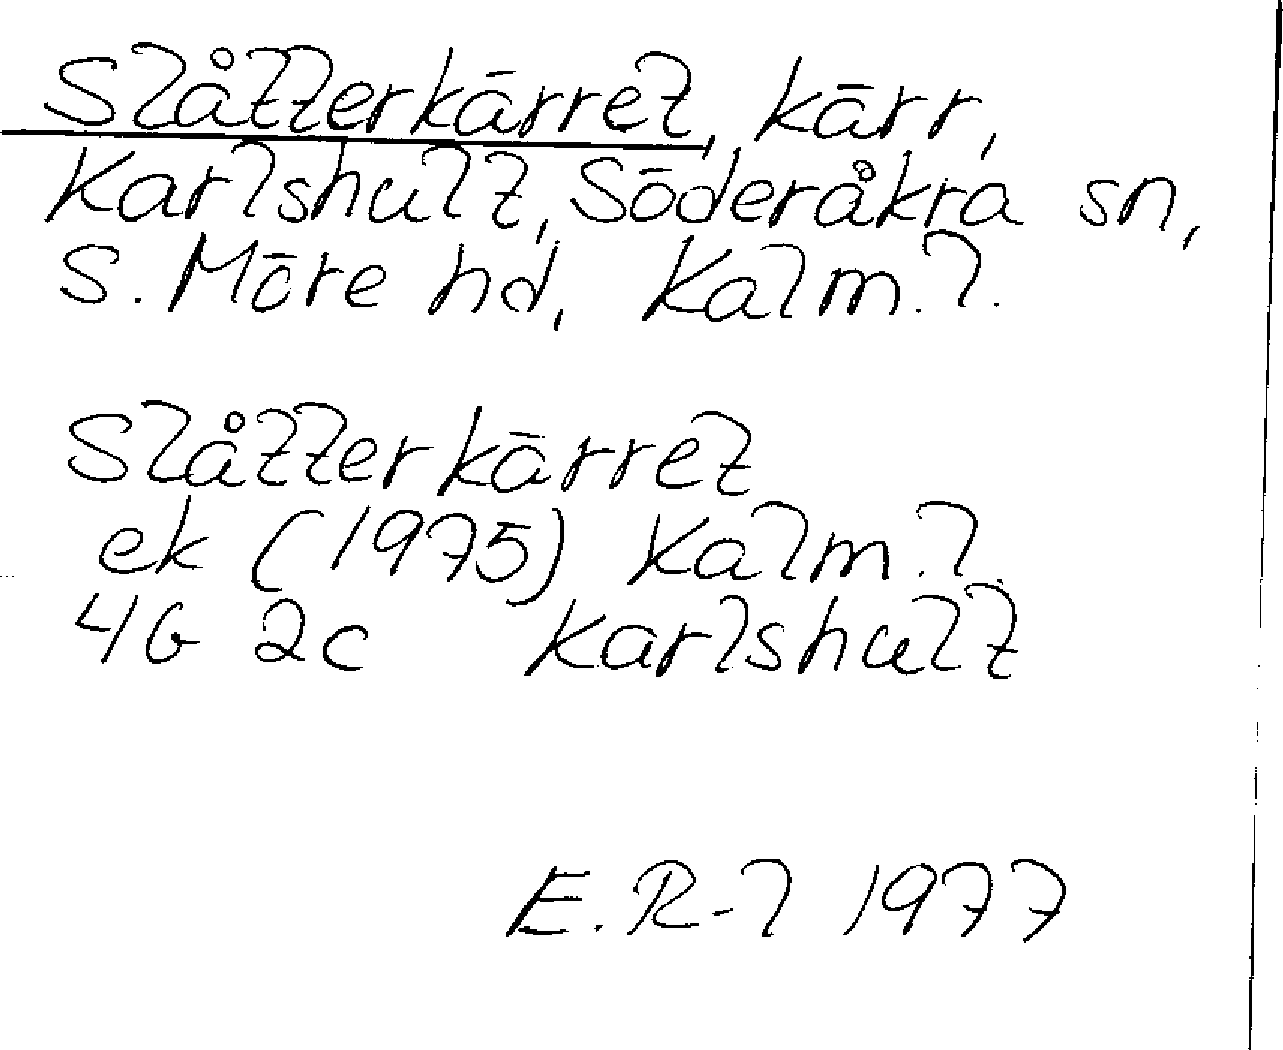 Slåtterkärret, kärr,
Karlshult, Söderåkra sn,
S. Möre hd, Kalm. l.
Slåtterkärret
ek (1975) Kalm. l.
4G 2c Karlshult
E. R-l 1977